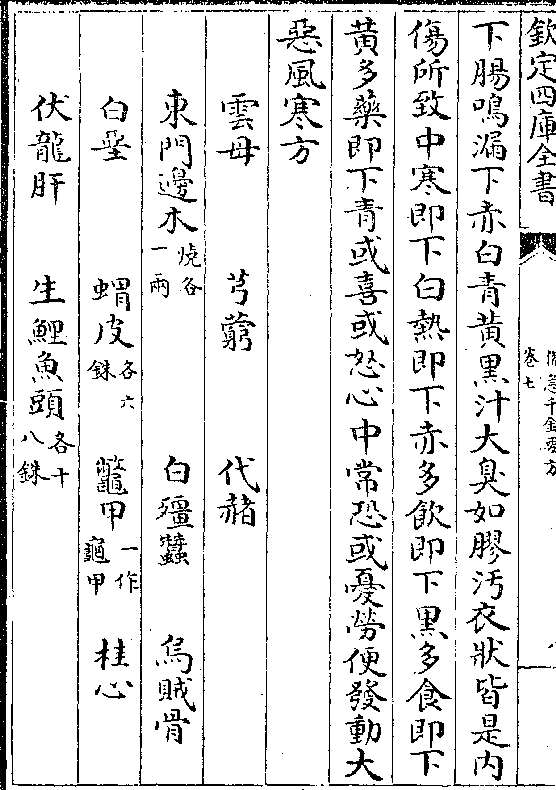 欽定四庫全書
卷七
下腸鳴漏下赤白青黄黑汁大臭如膠污衣狀皆是内
傷所致中寒即下白熱即下赤多飲即下黑多食即下
黄多藥即下青或喜或怒心中常恐或憂勞便發動大
惡風寒方
雲母 芎藭 代赭
東門邊木燒各一兩 白殭蠶 烏賊骨
白堊 蝟皮各六銖 鼈甲一作龜甲 桂心
伏龍肝 生鯉魚頭各十八銖